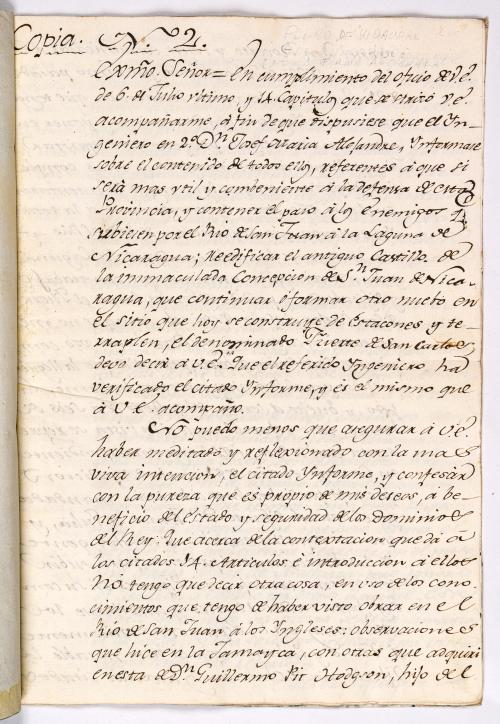 Copia. N.º 2.
Exmo. Señor = en cumplimiento del oficio de V.E.
de 6. de Julio ultimo, y 14. Capitulos que se sirvió V.E.
acompañarme, á fin de que dispusiese que el Yn-
geniero en 2.º Dn. Josef Maria Alejandre, Ynformase
sobre el contenido de todos ellos, referentes á que si
seria mas vtil y combeniente á la defensa de esta
Provincia, y contener el paso á los Enemigos q.e
subiesen por el Rio de San Juan á la Laguna de
Nicaragua; reedificar el antiguo Castillo de
la immaculada Concepcion de Sn. Juan de Nica-
ragua, que continuar ó formar otro nuebo en
el sitio que hoy se construye de Estacones y te-
rraplen, el denominado Fuerte de San Carlos;
devo decir á V.E. Que el referido Yngeniero ha
verificado el citado Ynforme, y és el mismo que
á V.E. acompaño.
No puedo menos que asegurar á V.E.
haber meditado y reflexionado con la mas
viva intencion, el citado Ynforme, y confesár
con la pureza que es propio de mis deseos, á be-
neficio del Estado y seguridad de los Dominios
del Rey: Que acerca de la contextacion que dá á
los citados 14. Articulos é introduccion á ellos
No tengo que decir otra cosa, en vso de los cono-
cimientos que tengo de haber visto obrar en el
Rio de San Juan á los Yngleses: observaciones
que hice en la Jamayca, con otras que adquiri
en esta de Dn. Guillermo Pit Hodgson, hijo del